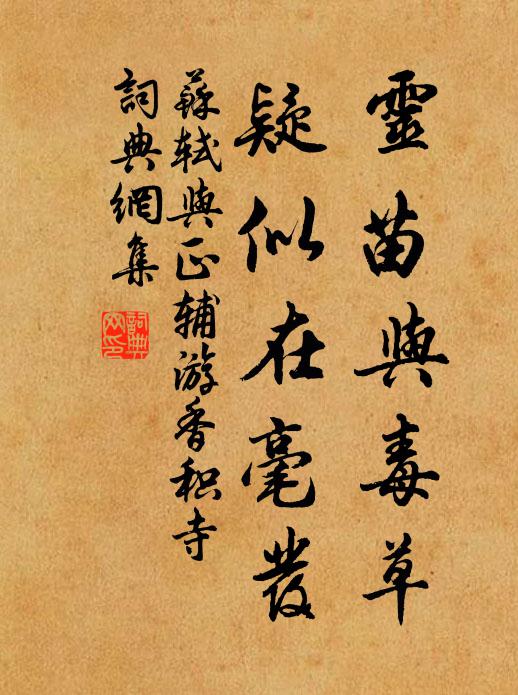 靈苗與毒草
疑似在毫發
蘇軾與正輔游香积寺
詞典網集
詞典